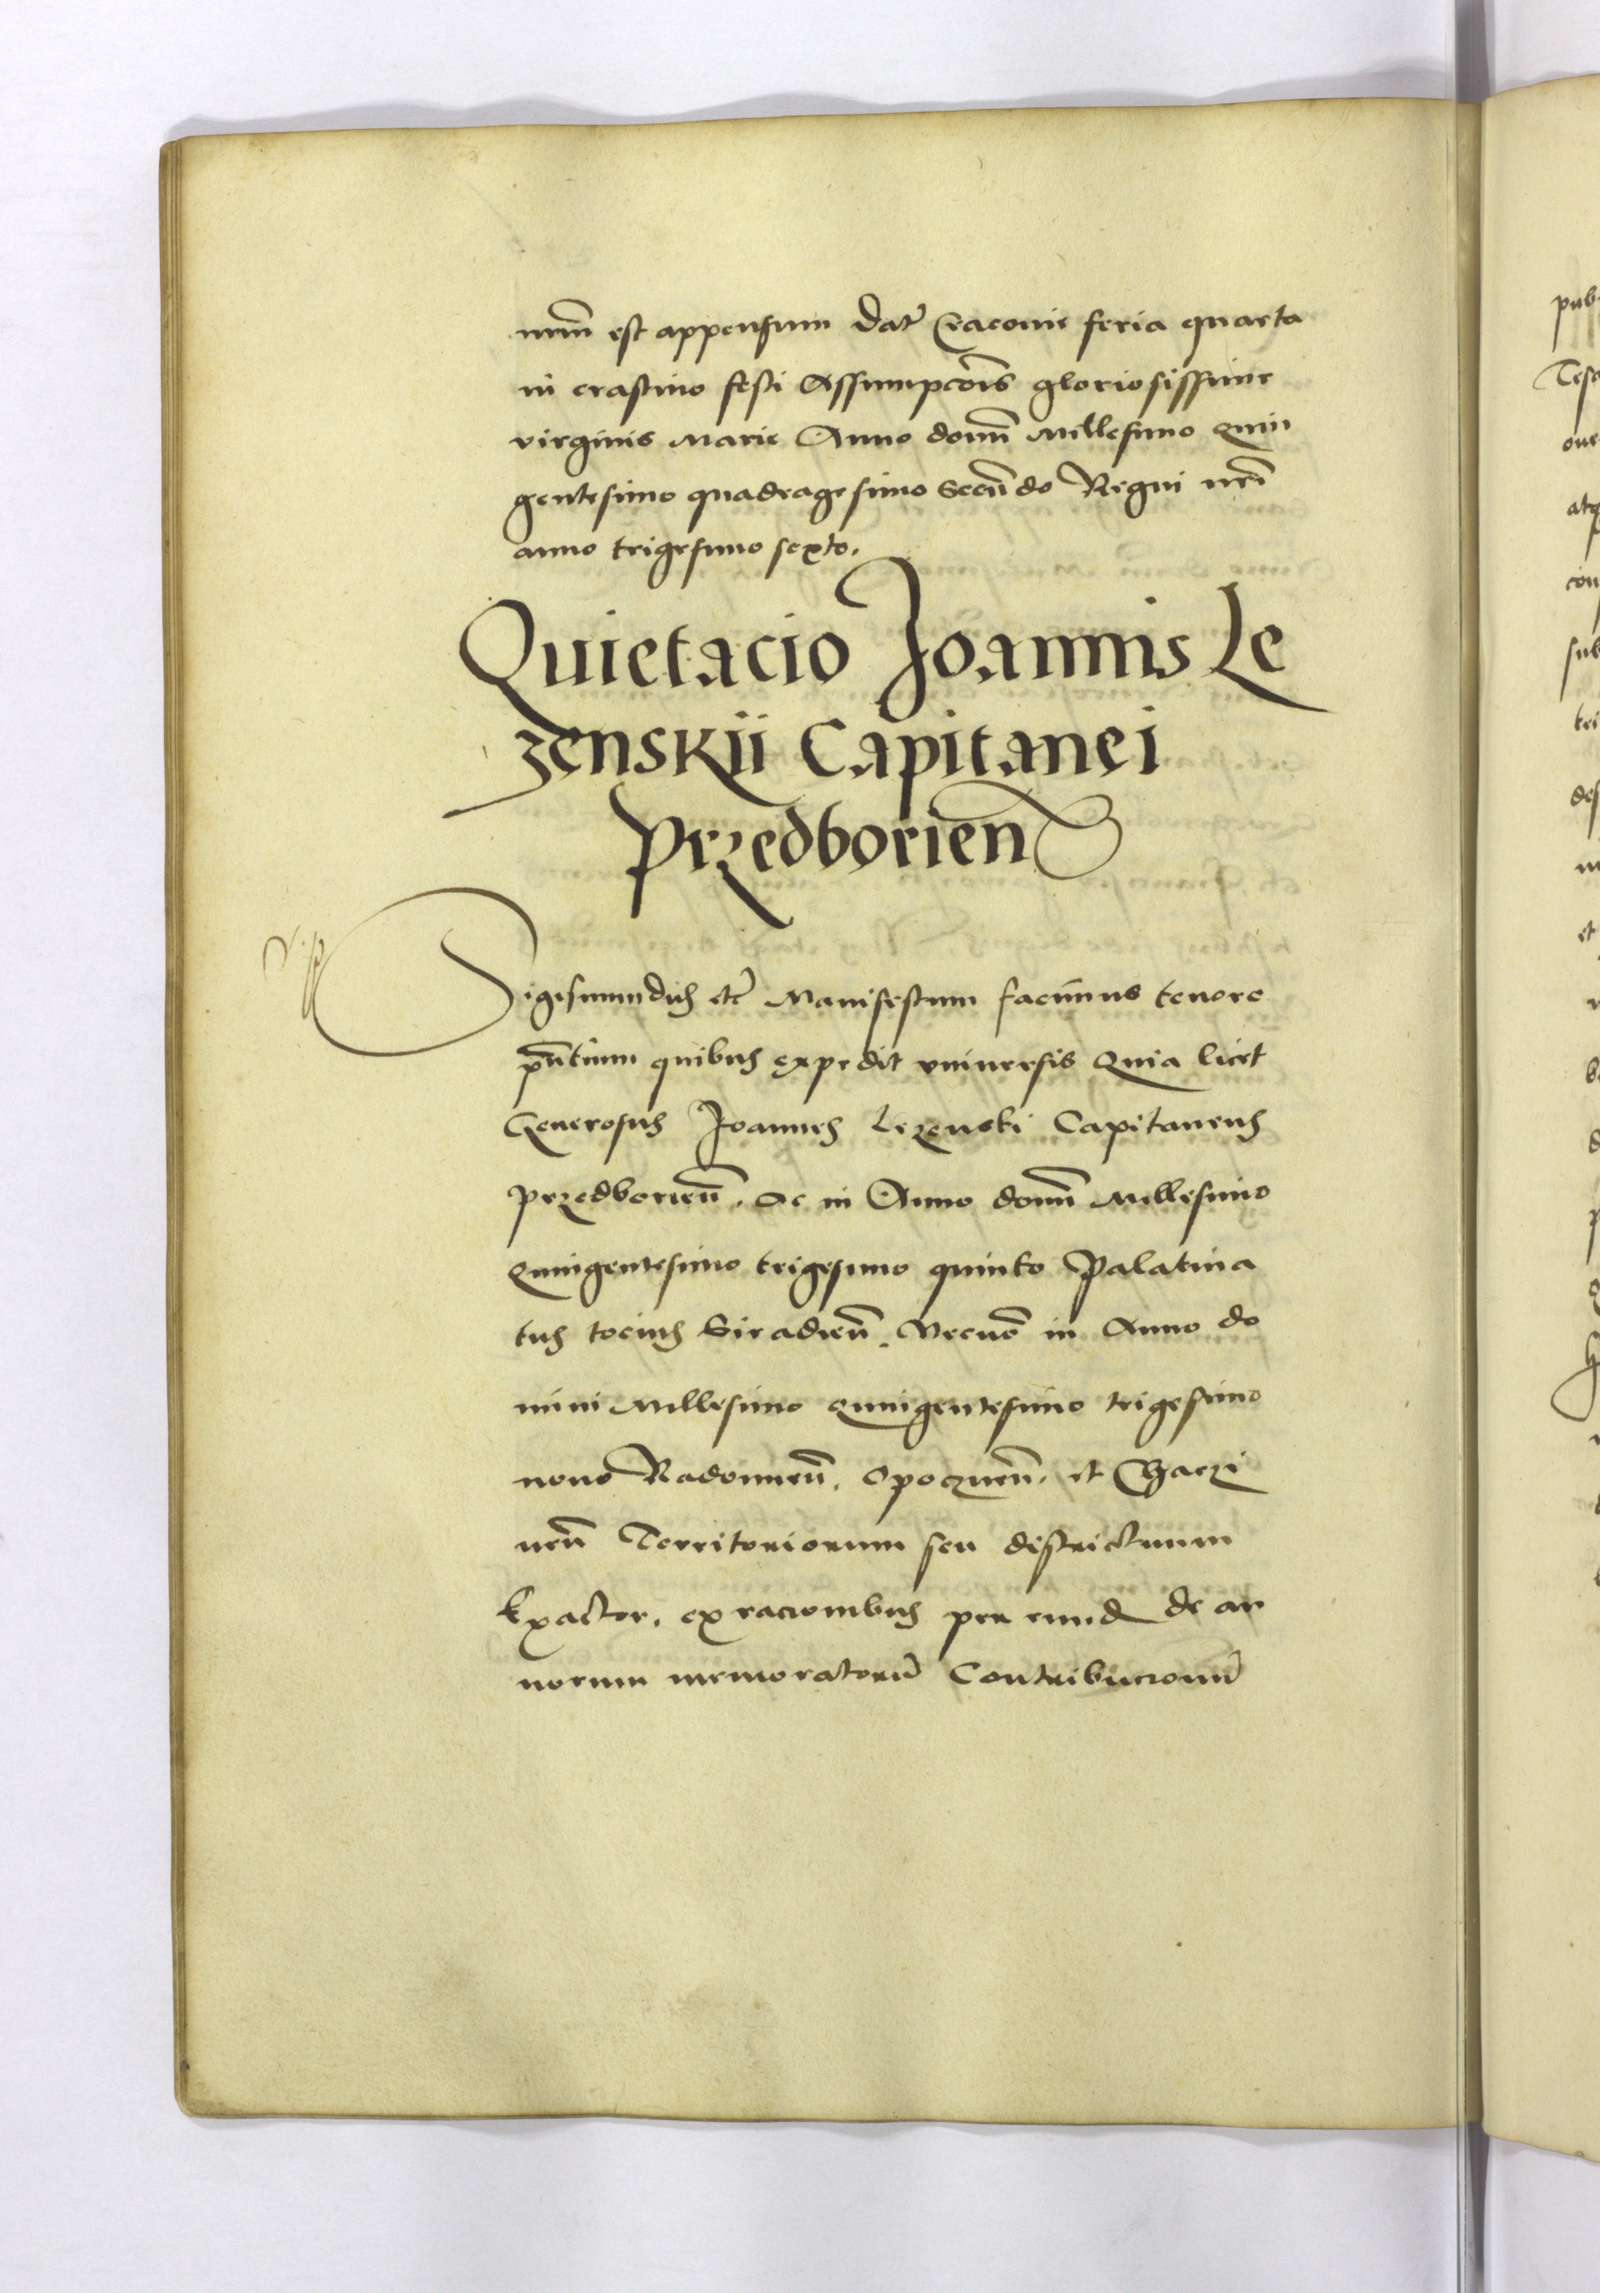 nrm̃ est appensum Dat̃ Cracovie feria quarta
in crastino festi Assumpcõis gloriosissime
virginis Marie Anno domĩ Millesimo Quin
gentesimo quadragesimo Secũdo Regni nrĩ
anno trigesimo sexto.
Quietacio Joannis Le
zenskii Capitanei
Przedborien̄
Sigismundus etc̃ Manifestum facimus tenore
pñtium quibus expedit universis Quia licet
Generosus Joannes Lezenski Capitaneus
Przedborien̄. Ac in Anno domĩ Millesimo
Quingentesimo trigesimo quinto Palatina
tus tocius Siradien̄. Necnõ in Anno do
mini Millesimo Quingentesimo trigesimo
nono Radomien̄. Opocznen̄. et Chaczi
nen̄ Territoriorum seu districtuum
Exactor. ex racionibus per eund de an
norum memoratorũ Contribucionũ